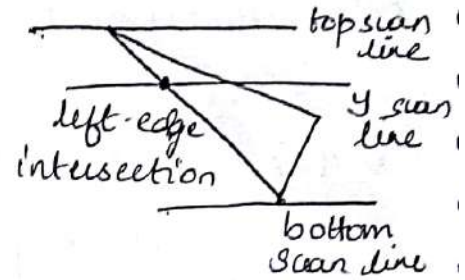 top scan
line
y scan
line
left-edge
intersection
bottom
scan line